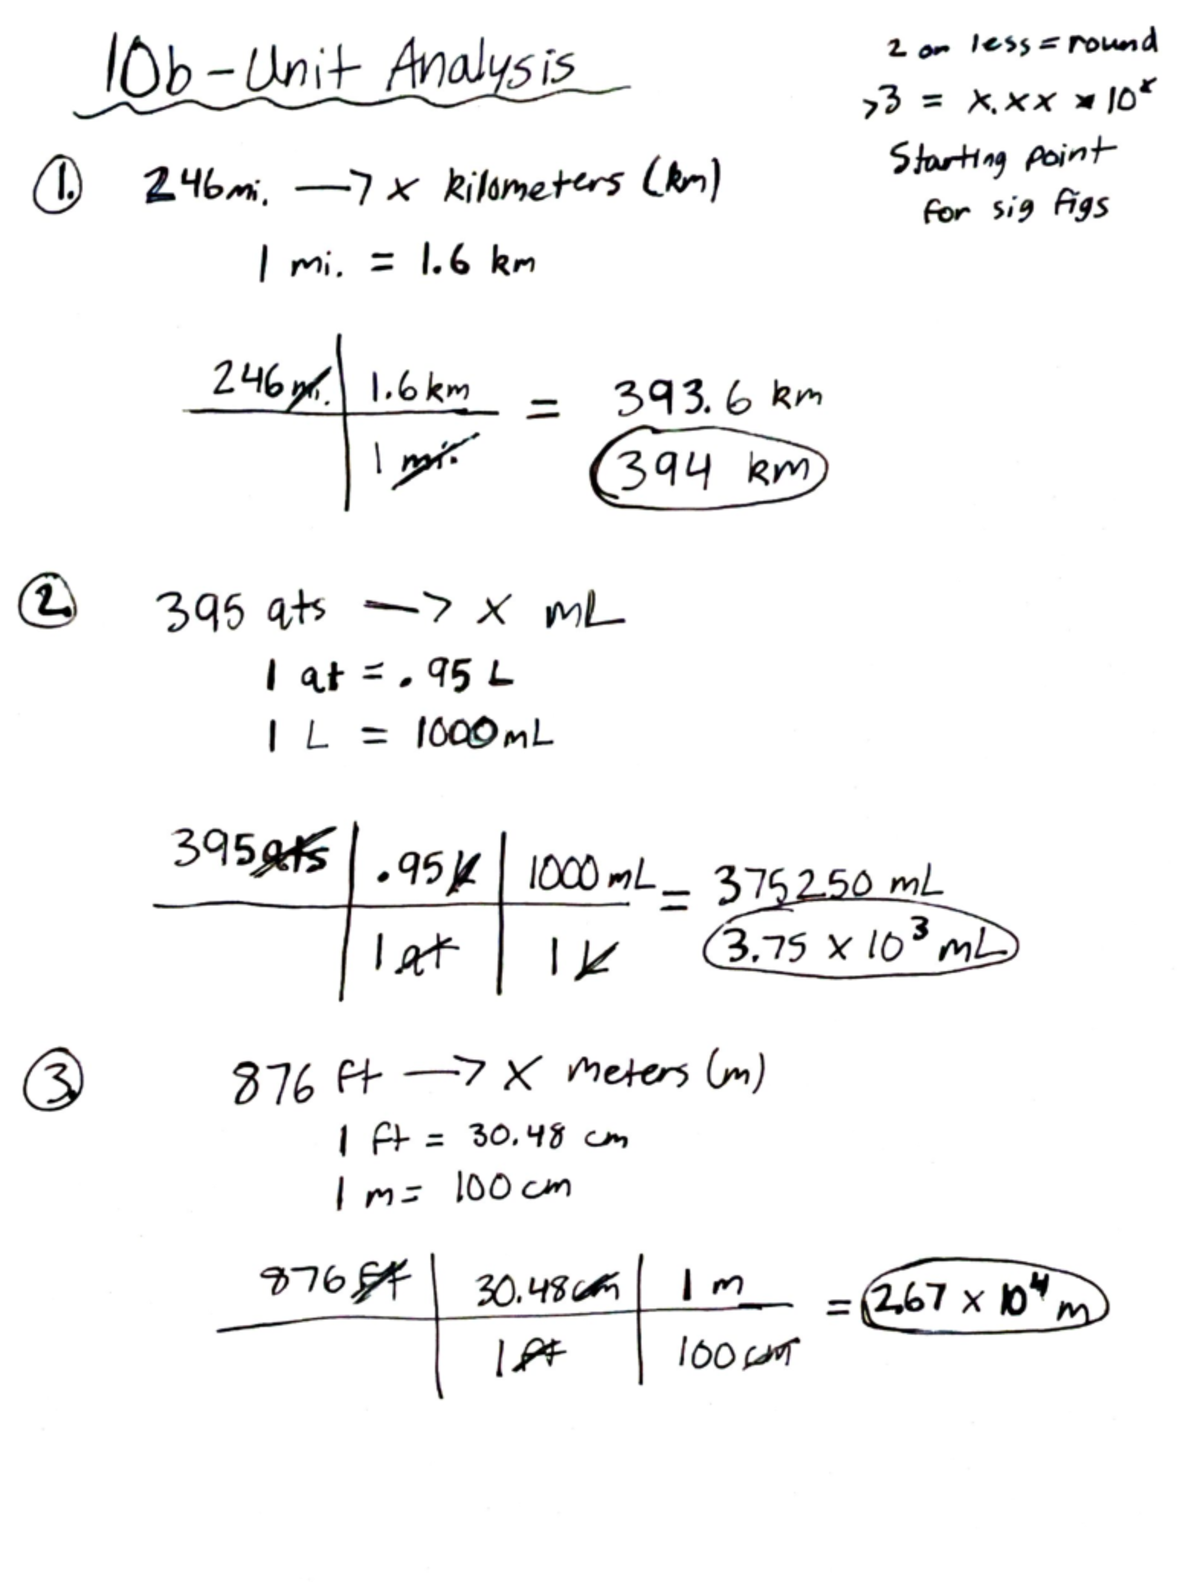 10b - Unit Analysis
2 or less = round
>3 = x.xx × 10ˣ
Starting point
for sig figs
1. 246 mi. → x kilometers (km)
1 mi. = 1.6 km
246 mi. | 1.6 km = 393.6 km
1 mi.
394 km
2. 395 qts → x mL
1 qt = .95 L
1 L = 1000 mL
395 qts | .95 L | 1000 mL = 375250 mL
1 qt | 1 L
3.75 x 10³ mL
3. 876 ft → x meters (m)
1 ft = 30.48 cm
1 m = 100 cm
876 ft | 30.48 cm | 1 m = 2.67 x 10⁴ m
1 ft | 100 cm